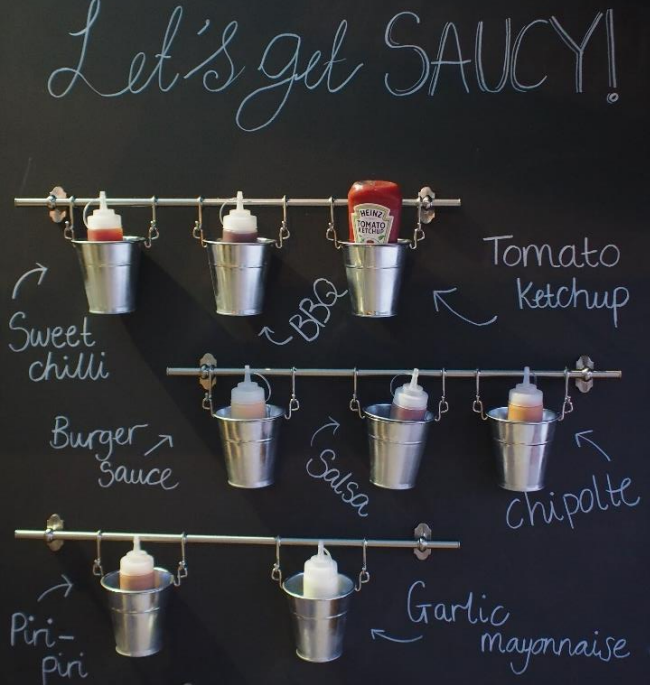 Let's get SAUCY!
HEINZ
TOMATO
KETCHUP
Sweet
chilli
BBQ
Tomato
Ketchup
Burger
Sauce
Salsa
Chipolte
Piri-
piri
Garlic
mayonnaise